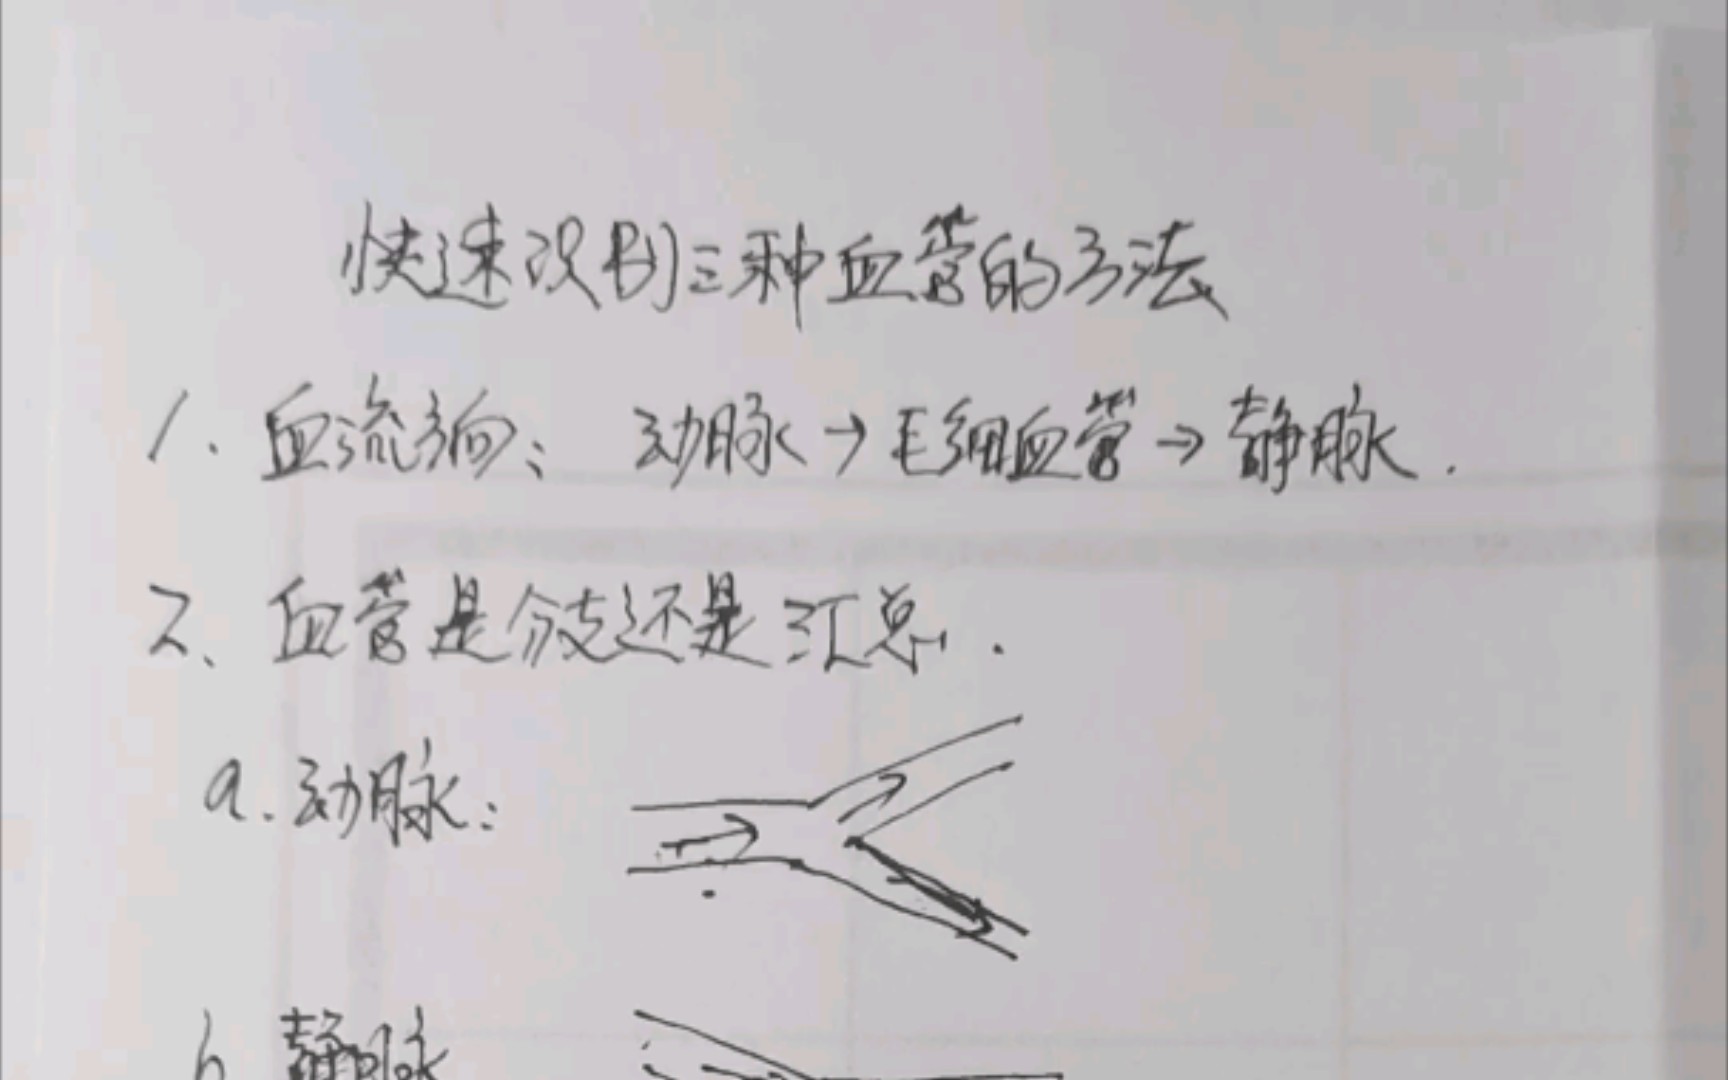 快速识别三种血管的方法
1. 血流方向: 动脉→毛细血管→静脉.
2、血管是分支还是汇总.
a. 动脉:
b 静脉